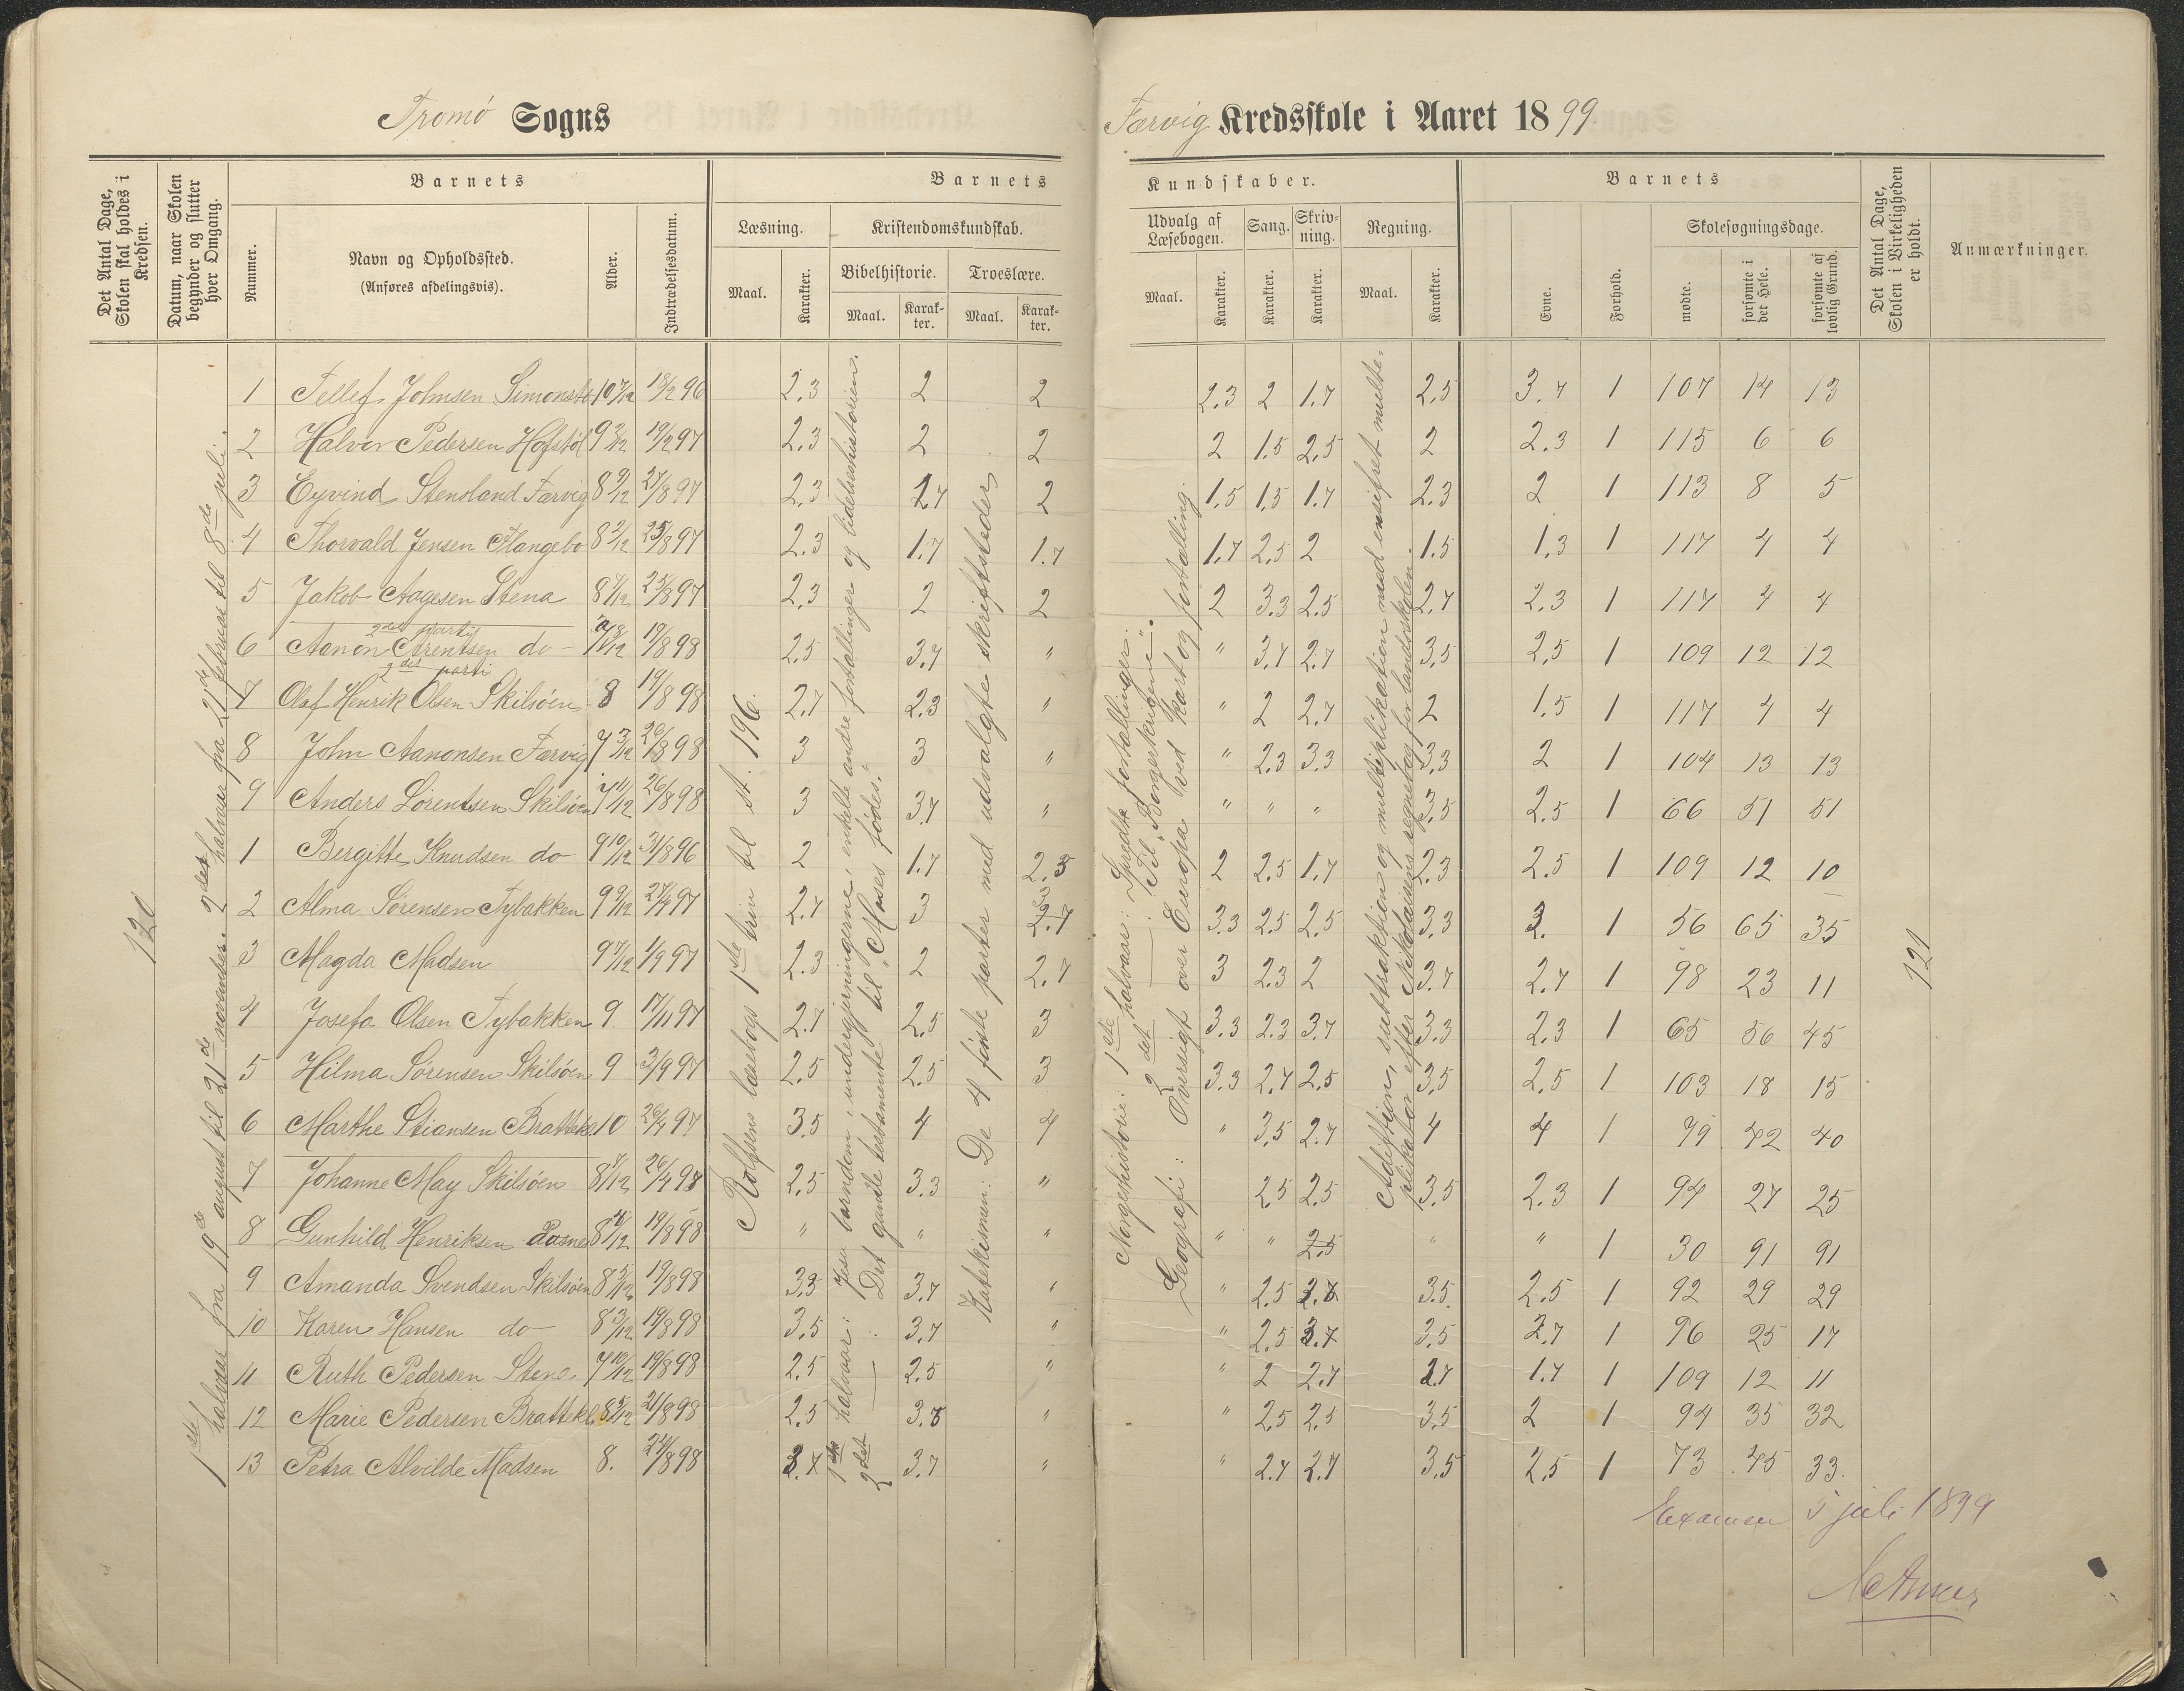 Tromö Sogns
Færvig Kredsskole i Aaret 1899
Det Antal Dage, Skolen skal holdes i Kredsen.
Datum, naar Skolen begynder og slutter hver Omgang.
Barnets
Nummer.
Navn og Opholdssted.
(Anføres afdelingsvis).
Alder.
Indtrædelsesdatum.
Barnets
Læsning.
Maal.
Karakter.
Kristendomskundskab.
Bibelhistorie.
Maal.
Karak-
ter.
Troeslære.
Maal.
Karak-
ter.
Kundskaber.
Udvalg af
Læsebogen.
Maal.
Karakter.
Sang.
Karakter.
Skriv-
ning.
Karakter.
Regning.
Maal.
Karakter.
Barnets
Evne.
Forhold.
Skolesøgningsdage.
mødte.
forsømte i det Hele.
forsømte af lovlig Grund.
Det Antal Dage, Skolen i Virkeligheden er holdt.
Anmærkninger.
120
1ste halvaar fra 19de august til 21de november. 2det halvaar fra 21de februar til 8de juli.
Rolfsens læsebogs 1ste trin til st. 196.
1ste halvaar: Jesu barndom, undergjerningerne, enkelte andre fortællinger og lidelseshistorien.
2det — : Det gamle testamente til "Moses fødes."
Katekismen: De 4 første parter med udvalgte skriftsteder.
Norgeshistorie: 1ste halvaar: Spredte fortællinger.
2det — : Til "Borgerkrigene".
Geografi: Oversigt over Europa ved kart og fortælling.
Addition, subtraktion og multiplikation med ensifret multi-
plikator efter Nikolaisens regnebog for landsskolen.
121
1 Tellef Johnsen Simonstø 10 7/12 18/2 96 2.3 2 2 2.3 2 1.7 2.5 3.7 1 107 14 13
2 Halvor Pedersen Hofstöl 9 3/12 19/2 97 2.3 2 2 2 1.5 2.5 2 2.3 1 115 6 6
3 Eyvind Stensland Færvig 8 9/12 27/8 97 2.3 2.7 2 1.5 1.5 1.7 2.3 2 1 113 8 5
4 Thorvald Jensen Flangebo 8 2/12 25/8 97 2.3 1.7 1.7 1.7 2.5 2 1.5 1.3 1 117 4 4
5 Jakob Aagesen Stena 8 7/12 25/8 97 2.3 2 2 2 3.3 2.5 2.7 2.3 1 117 4 4
2det parti
6 Aanon Arentsen do 19/8 98 2.5 3.7 " " 3.7 2.7 3.5 2.5 1 109 12 12
2det parti
7 Olaf Henrik Olsen Skilsöen 8 19/8 98 2.7 2.3 " " 2 2.7 2 1.5 1 117 4 4
8 John Aanonsen Færvig 7 3/12 26/8 98 3 3 " " 2.3 3.3 3.3 2 1 104 13 13
9 Anders Sörentsen Skilsöen 7 11/12 26/8 98 3 3.7 " " " " 3.5 2.5 1 66 51 51
1 Bergitte Knudsen do 9 10/12 31/8 96 2 1.7 2.3 2 2.5 1.7 2.3 2.5 1 109 12 10
2 Alma Sörensen Tybakken 9 9/12 27/4 97 2.7 3 3 2.7 3.3 2.5 2.5 3.3 3. 1 56 65 35
3 Magda Madsen 9 7/12 1/9 97 2.3 2 2.7 3 2.3 2 3.7 2.7 1 98 23 11
4 Josefa Olsen Tybakken 9 17/11 97 2.7 2.5 3 3.3 2.3 3.7 3.3 2.3 1 65 56 45
5 Hilma Sörensen Skilsöen 9 3/9 97 2.5 2.5 3 3.3 2.7 2.5 3.5 2.5 1 103 18 15
6 Marthe Stiansen Brattekl 10 26/4 97 3.5 4 4 " 3.5 2.7 4 4 1 79 42 40
7 Johanne May Skilsöen 8 7/12 26/4 98 2.5 3.3 " 2.5 2.5 3.5 2.3 1 94 27 25
8 Gunhild Henriksen Rosnes 19/8 98 " " " " " 2.5 " " 1 30 91 91
9 Amanda Svendsen Skilsöen 8 5/12 19/8 98 3.3 3.7 " " 2.5 3.5 2.5 1 92 29 29
10 Karen Hansen do 8 3/12 19/8 98 3.5 3.7 " " 2.5 3.7 3.5 2.7 1 96 25 17
11 Ruth Pedersen Stene 7 10/12 19/8 98 2.5 2.5 " " 2 2.7 2.7 1.7 1 109 12 11
12 Marie Pedersen Brattekl 8 5/12 21/8 98 2.5 3.3 " " 2.5 2.5 3.5 2 1 94 35 32
13 Petra Alvilde Madsen 8. 24/8 98 3.7 3.7 " " 2.7 2.7 3.5 2.5 1 73 45 33.
Examen 5 juli 1899